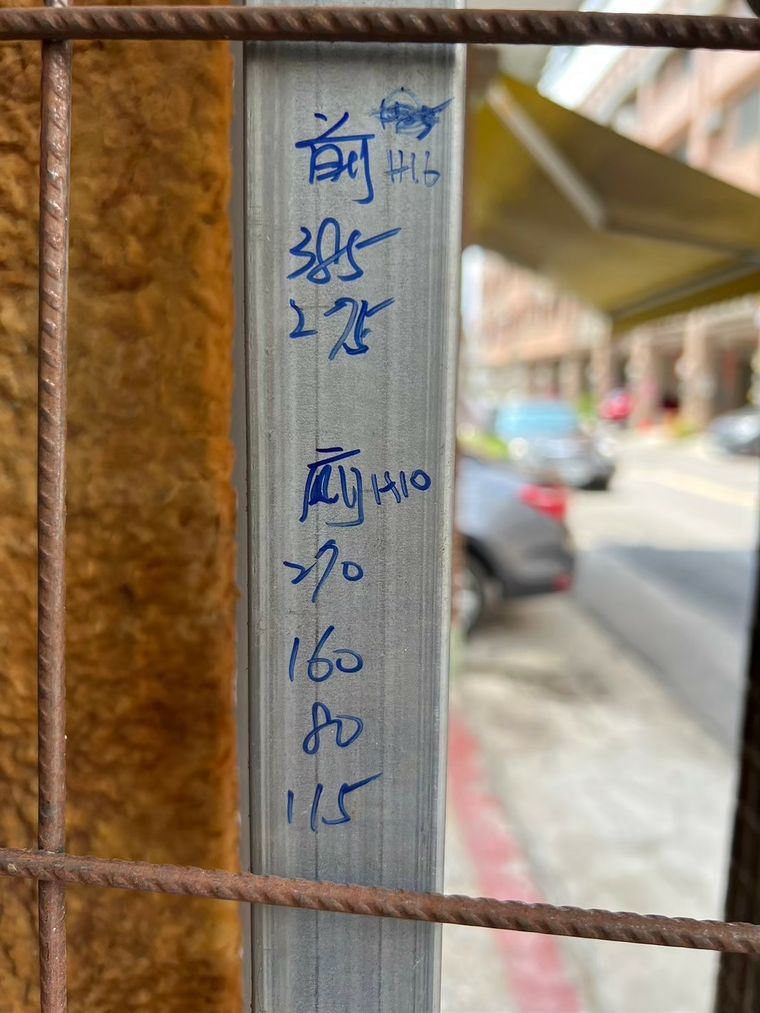 前 H16
385
275
廁 H10
270
160
80
115